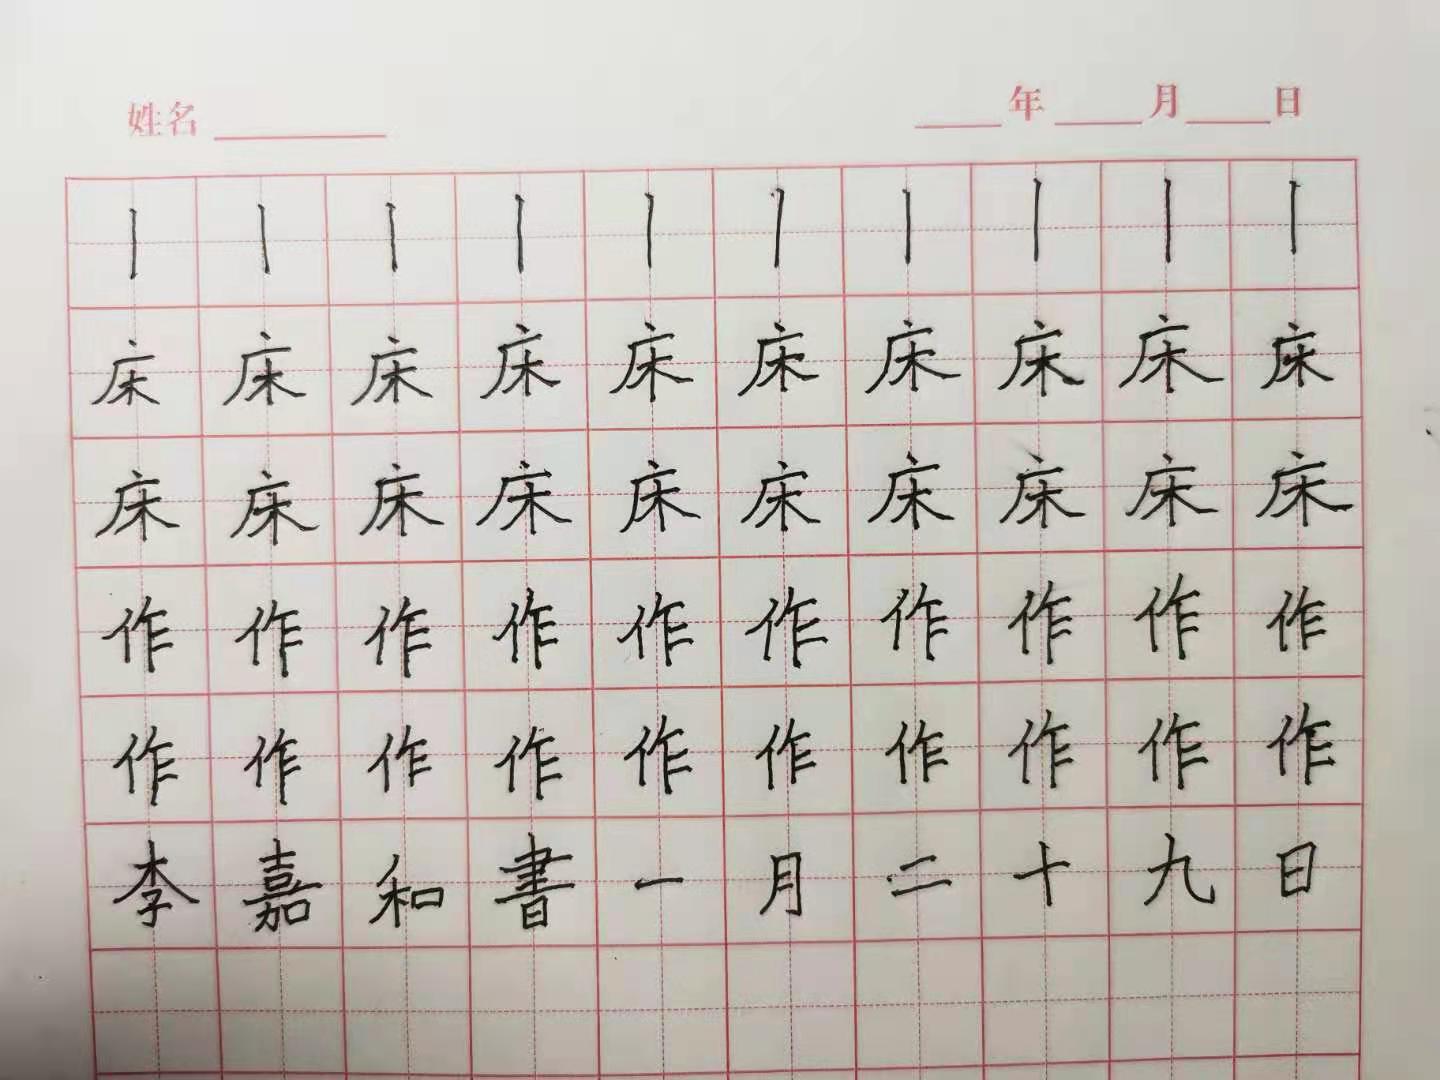 姓名 年 月 日
丨丨丨丨丨丨丨丨丨丨
床床床床床床床床床床
床床床床床床床床床床
作作作作作作作作作作
作作作作作作作作作作
李嘉和書一月二十九日